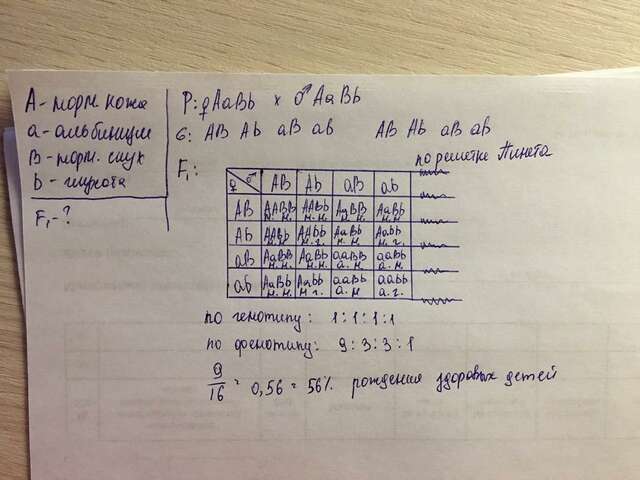 А - норм. кожа
а - альбинизм
В - норм. слух
b - глухота
F₁ - ?
P: ♀ AaBb x ♂ AaBb
G: AB Ab aB ab AB Ab aB ab
F₁:
по решетке Пинета
♀ ♂ AB Ab aB ab
AB AABB н.н. AABb н.н. AaBB н.н. AaBb н.н.
Ab AABb н.н. AAbb н.г. AaBb н.н. Aabb н.г.
aB AaBB н.н. AaBb н.н. aaBB а.н. aaBb а.н.
ab AaBb н.н. Aabb н.г. aaBb а.н. aabb а.г.
по генотипу: 1:1:1:1
по фенотипу: 9:3:3:1
9/16 = 0,56 = 56% рождения здоровых детей